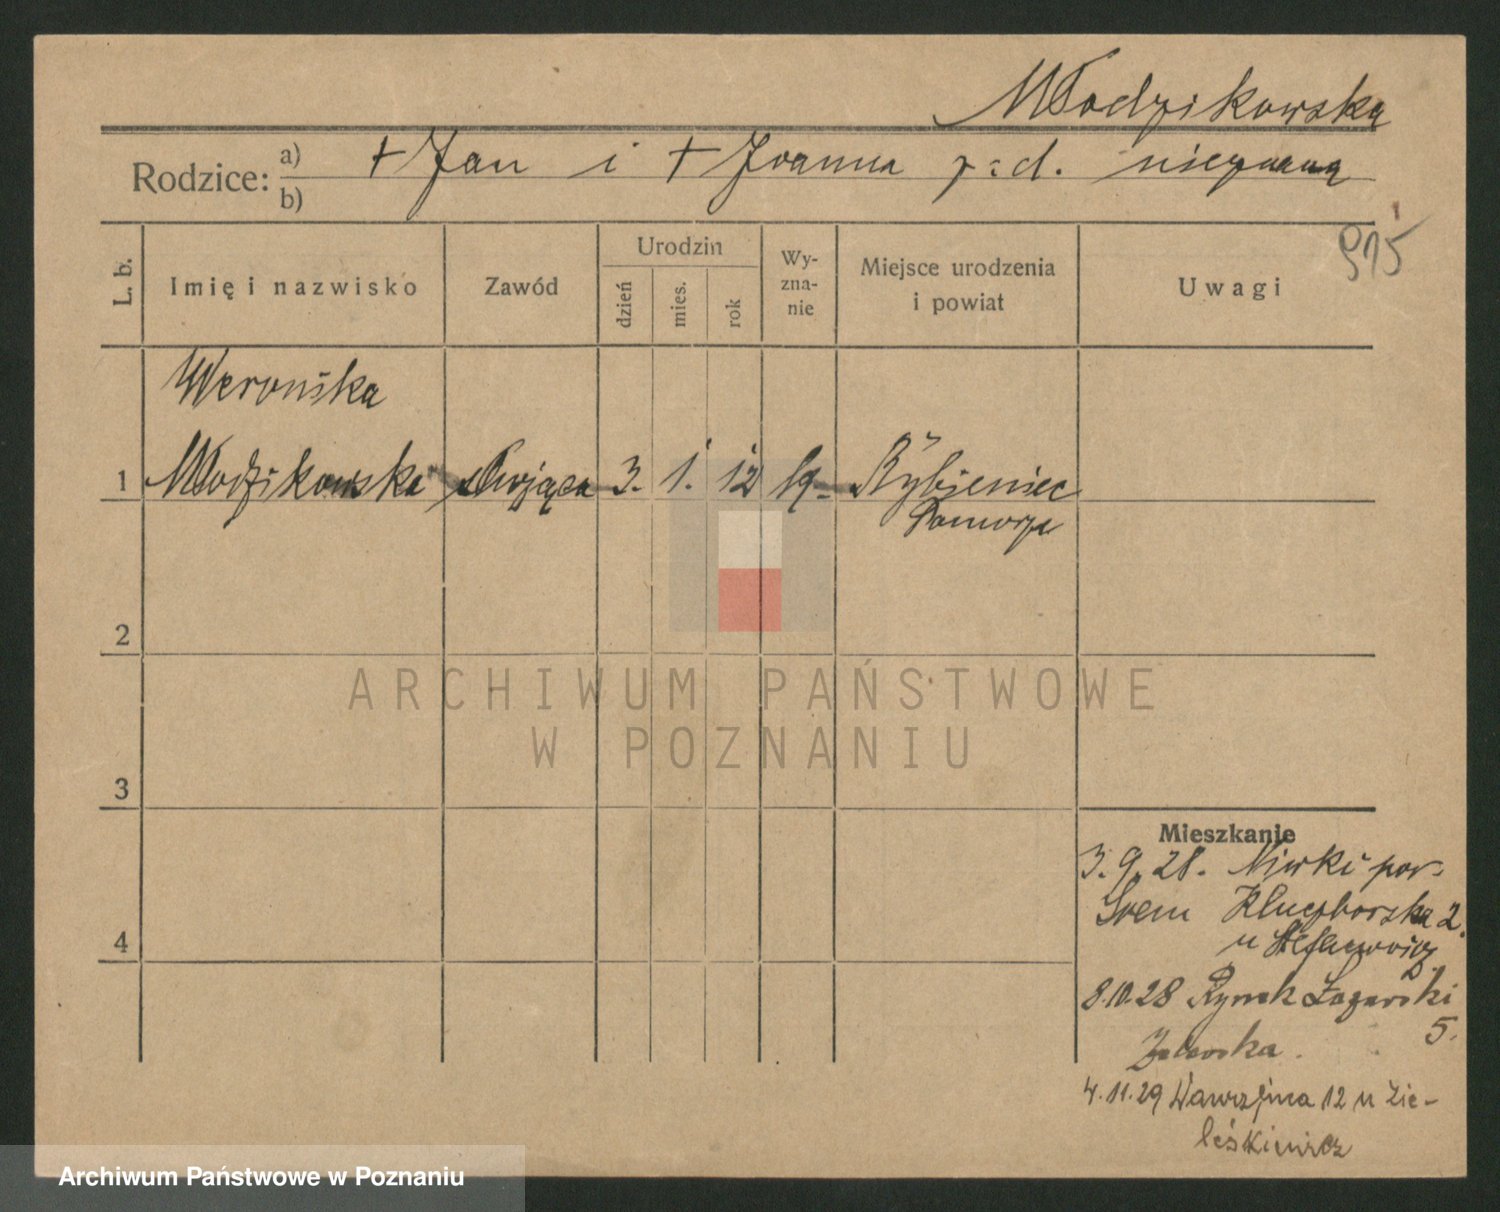 Włodzikowska
Rodzice: a) b) + Jan i + Joanna z d. nieznana
915
L. b. Imię i nazwisko Zawód Urodzin dzień mies. rok Wy-zna-nie Miejsce urodzenia i powiat Uwagi
Weronika
1 Włodzikowska służąca 3. 1. 12 Rybieniec
Pomorze
2
ARCHIWUM PAŃSTWOWE
W POZNANIU
3
Mieszkanie
3.9.28. Niwki pow.
Śrem Kluczborska 2.
u Stefanowicz
4
8.10.28 Rynek Łazarski
5.
4.11.29 Wawrzyńca 12 u Zie-
leśkiewicz
Archiwum Państwowe w Poznaniu